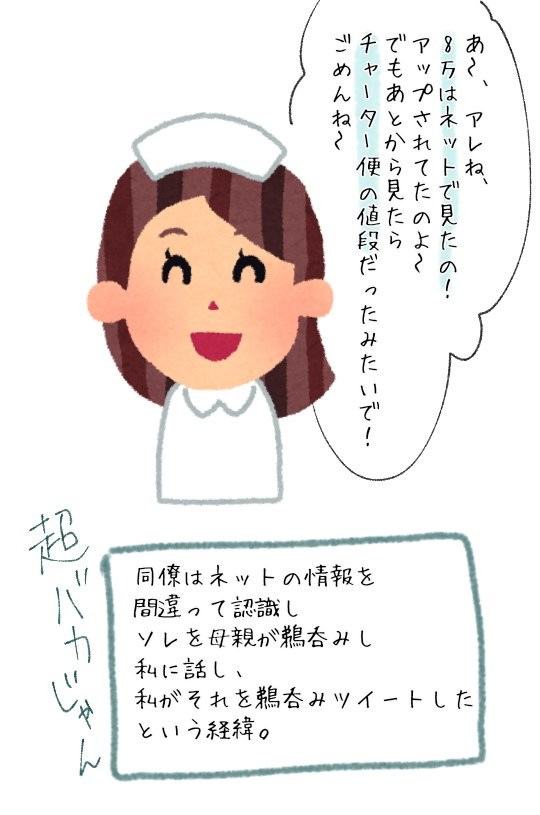 あ〜、アレね、
8万はネットで見たの!
アップされてたのよ〜
でもあとから見たら
チャーター便の値段だったみたいで!
ごめんね〜
同僚はネットの情報を
間違って認識し
ソレを母親が鵜呑みし
私に話し、
私がそれを鵜呑みツイートした
という経緯。
超バカじゃん